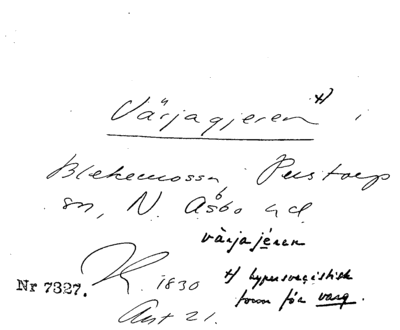 Värjagjeren x) i
Blekemossa Perstorp
sn, N. Åsbo hd
värjajéren
Nr 7327. 1830
x) hypersvecistisk
form för varg.
Avt 21.